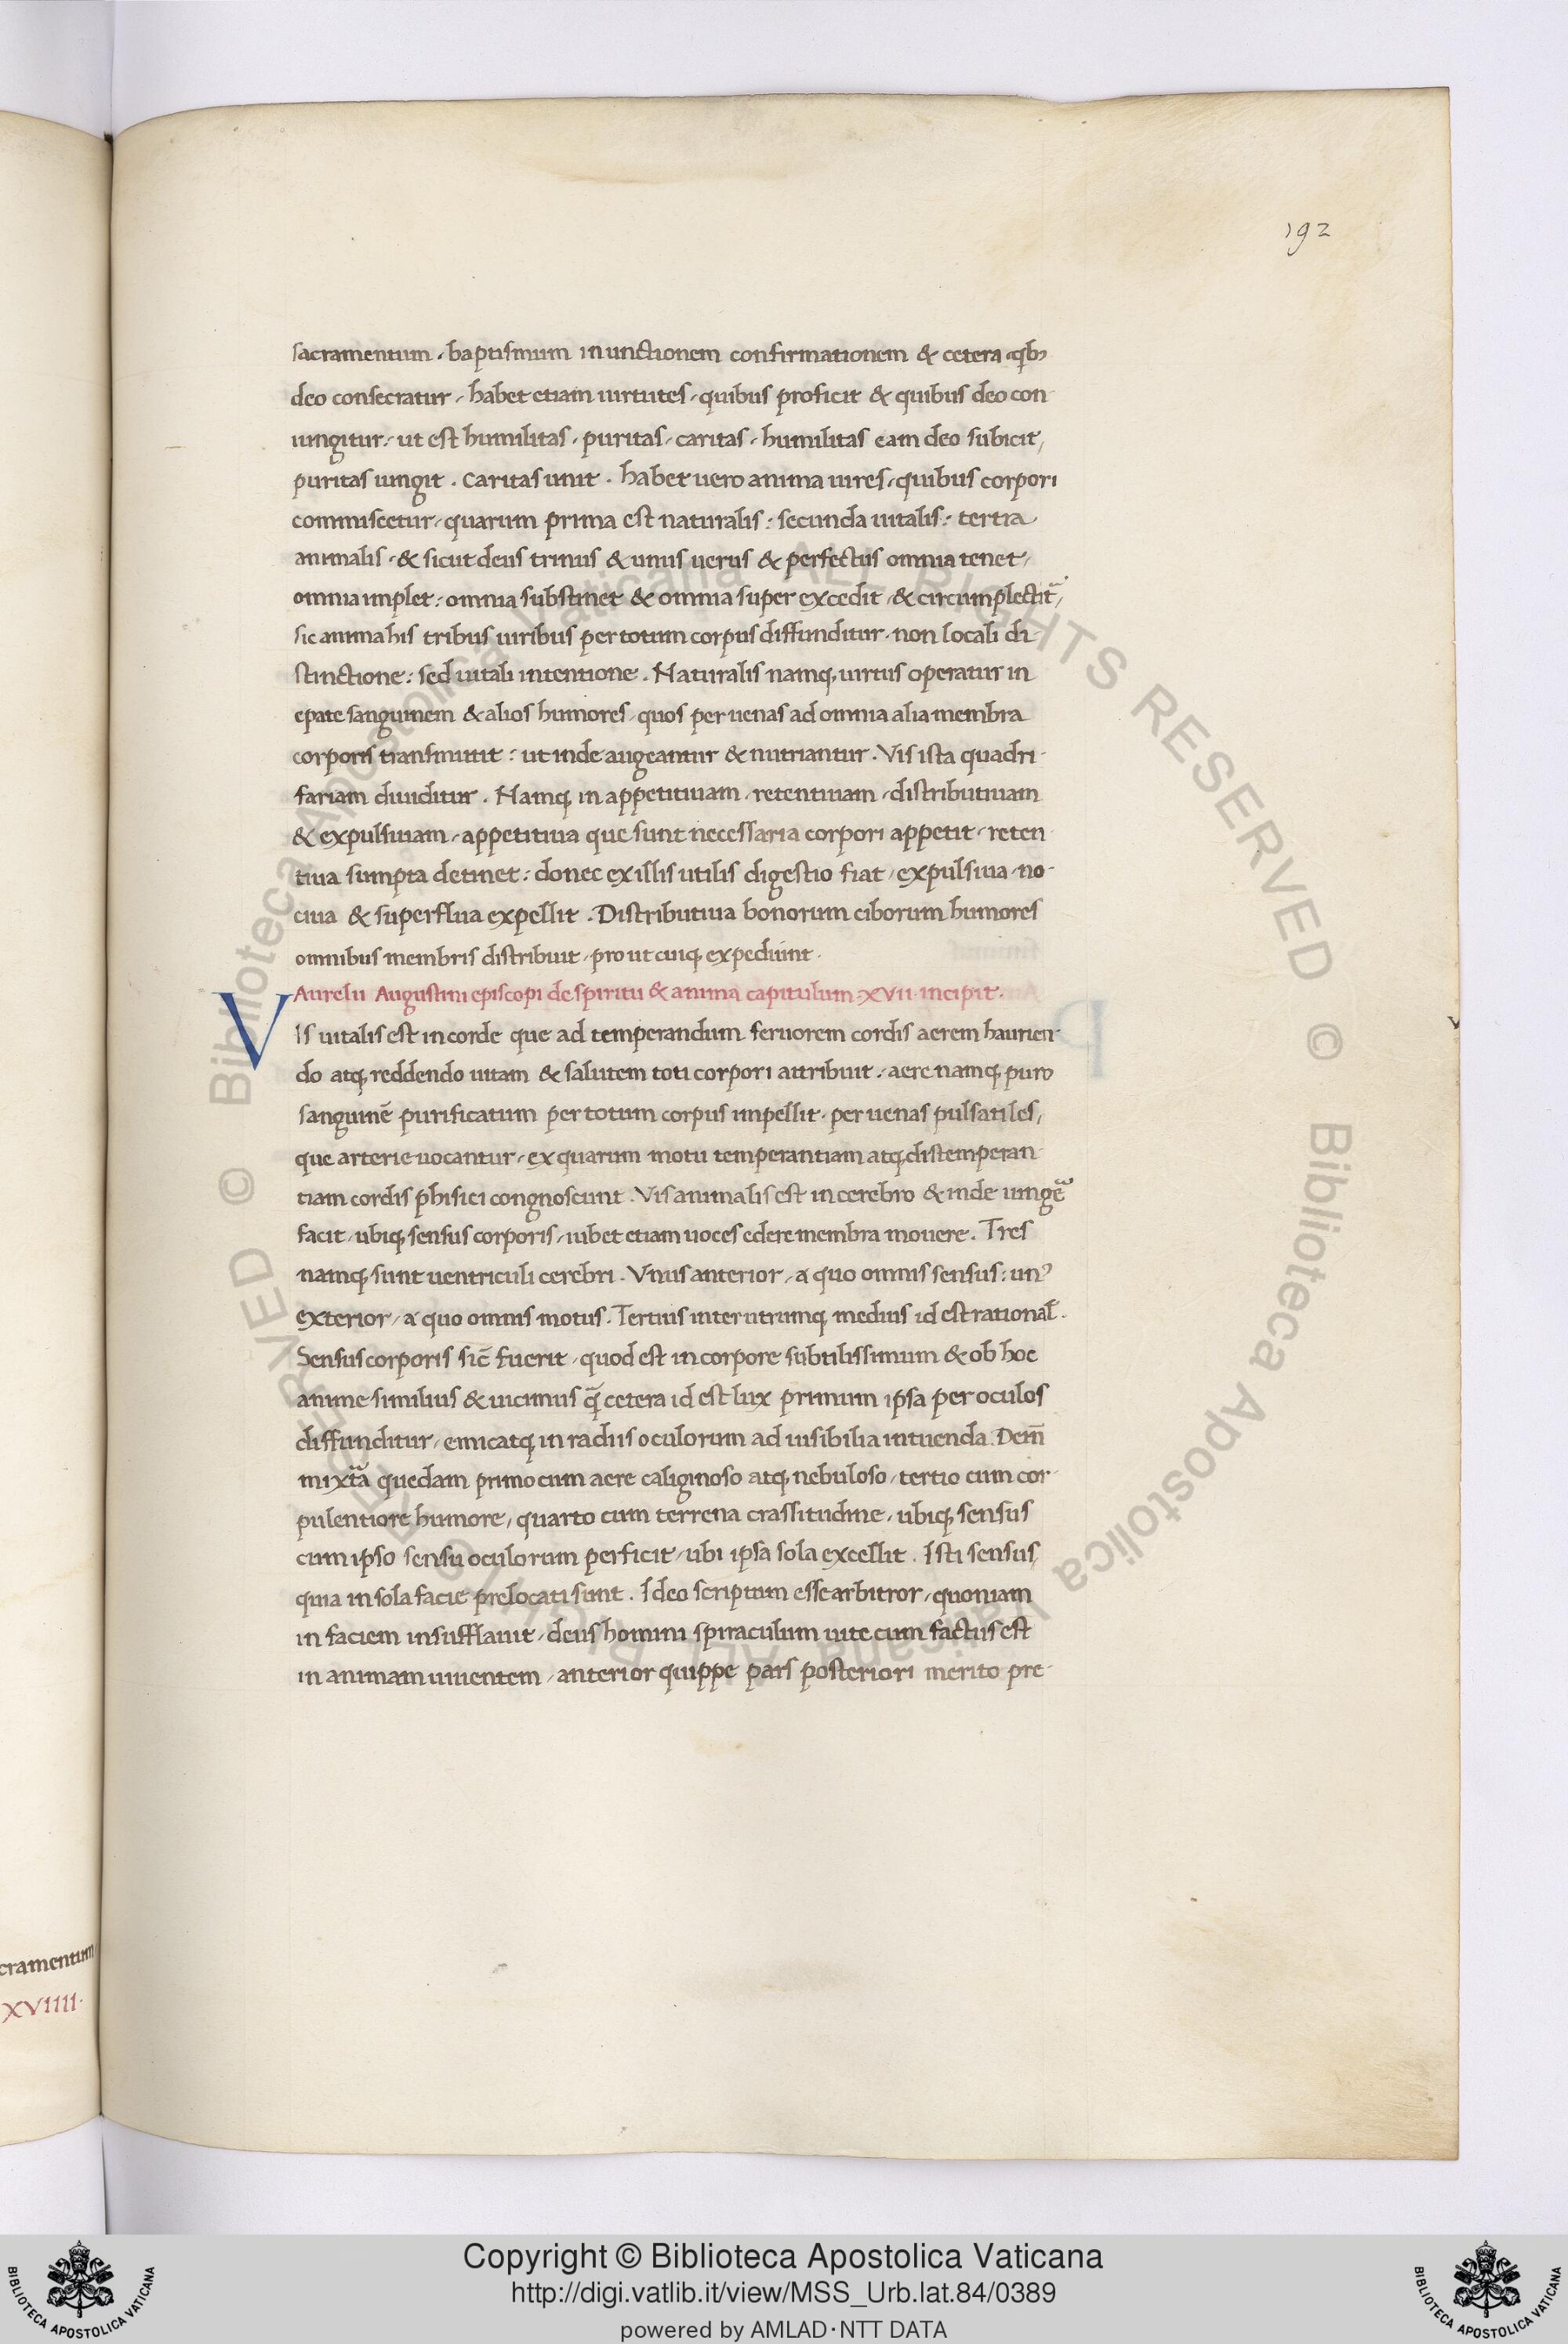 192
sacramentum, baptismum inunctionem confirmationem & cetera qbꝫ
deo consecratur, habet etiam uirtutes, quibus proficit & quibus deo con
iungitur, ut est humilitas, puritas, caritas, humilitas eam deo subicit,
puritas iungit. Caritas unit. habet uero anima uires, quibus corpori
commiscetur, quarum prima est naturalis: secunda uitalis: tertia
animalis, & sicut deus trinus & unus uerus & perfectus omnia tenet,
omnia implet: omnia substinet & omnia super excedit, & circumplectit᷑,
sic anima his tribus uiribus per totum corpus diffunditur, non locali di
stinctione: sed uitali intentione. Naturalis namqꝫ uirtus operatur in
epate sanguinem & alios humores, quos per uenas ad omnia alia membra
corporis transmittit: ut inde augeantur & nutriantur. Vis ista quadri
fariam diuiditur. Namqꝫ in appetitiuam, retentiuam, distributiuam
& expulsiuam, appetitiua que sunt necessaria corpori appetit, reten
tiua sumpta detinet: donec ex illis utilis digestio fiat, expulsiua, no-
ciua & superflua expellit. Distributiua bonorum ciborum humores
omnibus membris distribuit, prout cuiqꝫ expediunt.
Aurelii Augustini episcopi de spiritu & anima capitulum XVII incipit.
VIS uitalis est in corde que ad temperandum feruorem cordis aerem haurien
do atqꝫ reddendo uitam & salutem toti corpori attribuit: aere namqꝫ puro
sanguinē purificatum per totum corpus impellit, per uenas pulsatiles,
que arterie uocantur, ex quarum motu temperantiam atqꝫ distemperan
tiam cordis phisici congnoscunt. Vis animalis est in cerebro & inde uigē᷑
facit, ubiqꝫ sensus corporis, iubet etiam uoces edere membra mouere. Tres
namqꝫ sunt uentriculi cerebri. Vnus anterior, a quo omnis sensus: unꝰ
exterior, a quo omnis motus. Tertius inter utrumqꝫ medius id est rational̄.
Sensus corporis sic̄ fuerit, quod est in corpore subtilissimum & ob hoc
anime similius & uicinius q̄ cetera id est lux primum ipsa per oculos
diffunditur, emicatqꝫ in radiis oculorum ad uisibilia intuenda. Dein̄
mixta quedam primo cum aere caliginoso atqꝫ nebuloso, tertio cum cor
pulentiore humore, quarto cum terrena crassitudine, ubiqꝫ sensus
cum ipso sensu oculorum perficit, ubi ipsa sola excellit. Isti sensus,
quia in sola facie prelocati sunt. Ideo scriptum esse arbitror, quoniam
in faciem insufflauit, deus homini spiraculum uite cum factus est
in animam uiuentem, anterior quippe pars posteriori merito pre-
cramentum
XVIIII.
Copyright © Biblioteca Apostolica Vaticana
http://digi.vatlib.it/view/MSS_Urb.lat.84/0389
powered by AMLAD·NTT DATA
BIBLIOTECA APOSTOLICA VATICANA
BIBLIOTECA APOSTOLICA VATICANA
© Biblioteca Apostolica Vaticana ALL RIGHTS RESERVED © Biblioteca Apostolica Vaticana ALL RIGHTS RESERVED